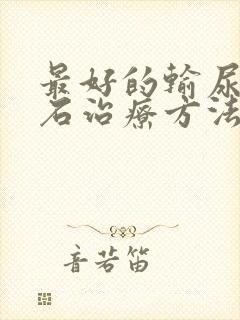 最好的输尿
石治療方法
音若笛